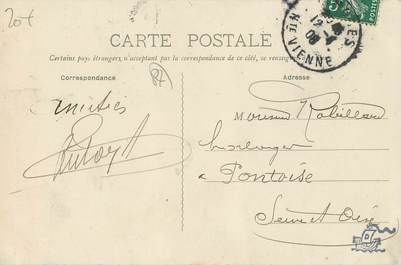 20+
CARTE POSTALE
Certains pays étrangers n'acceptant pas la correspondance de ce côté, se renseigner
Correspondance
Adresse
Amitiés
Monsieur Robillard
horloger
a Pontoise
Seine et Oise
HTE VIENNE
5